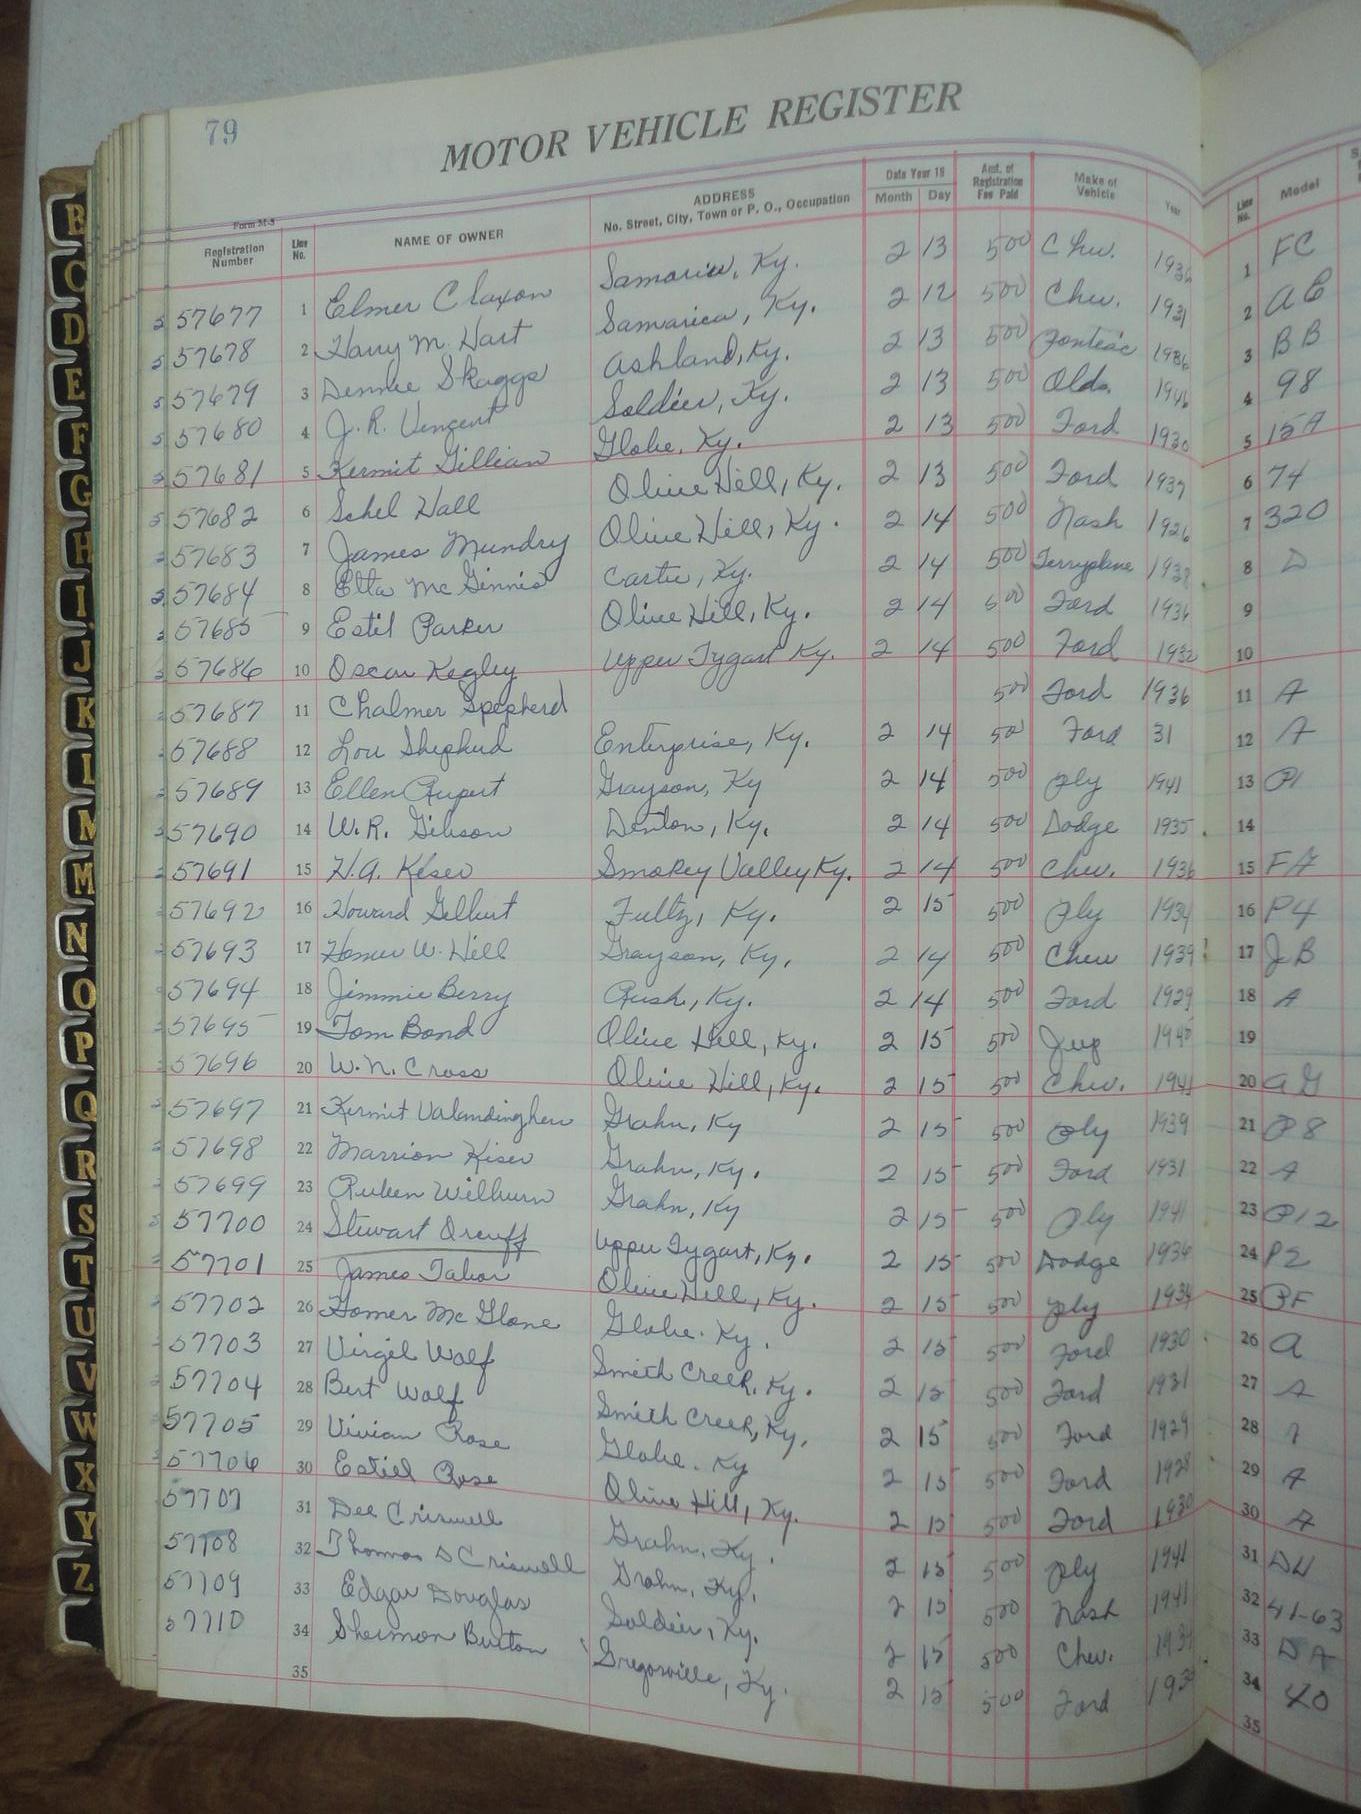 79
MOTOR VEHICLE REGISTER
Form M-5
Registration Number Line No. NAME OF OWNER ADDRESS No. Street, City, Town or P. O., Occupation Date Year 19 Month Day Amt. of Registration Fee Paid Make of Vehicle Year Line No. Model
57677 1 Elmer Claxon Samarica, Ky. 2 13 500 Chev. 1936 1 FC
57678 2 Harry M. Hart Samarica, Ky. 2 12 500 Chev. 1931 2 AE
57679 3 Dennie Skaggs Ashland, Ky. 2 13 500 Pontiac 1936 3 BB
57680 4 J. R. Vencent Soldier, Ky. 2 13 500 Olds. 1946 4 98
57681 5 Kermit Gillian Globe, Ky. 2 13 500 Ford 1930 5 15A
57682 6 Schel Hall Olive Hill, Ky. 2 13 500 Ford 1937 6 74
57683 7 James Mundry Olive Hill, Ky. 2 14 500 Nash 1926 7 320
57684 8 Etta McGinnis Carter, Ky. 2 14 500 Terryplane 1938 8 D
57685 9 Estil Parker Olive Hill, Ky. 2 14 500 Ford 1936 9
57686 10 Oscar Kegley Upper Tygart Ky. 2 14 500 Ford 1932 10
57687 11 Chalmer Spepherd 500 Ford 1936 11 A
57688 12 Lou Shepherd Enterprise, Ky. 2 14 500 Ford 31 12 A
57689 13 Ellen Rupert Grayson, Ky 2 14 500 Ply 1941 13
57690 14 W. R. Gibson Denton, Ky. 2 14 500 Dodge 1935 14
57691 15 H. A. Kiser Smokey Valley Ky. 2 14 500 Chev. 1936 15 FA
57692 16 Howard Gilbert Fultz, Ky. 2 15 500 Ply 1934 16 P4
57693 17 Homer W. Hill Grayson, Ky. 2 14 500 Chev 1939 17 JB
57694 18 Jimmie Berry Rush, Ky. 2 14 500 Ford 1929 18 A
57695 19 Tom Bond Olive Hill, Ky. 2 15 500 Jeep 19
57696 20 W. N. Cross Olive Hill, Ky. 2 15 500 Chev. 1941 20 AG
57697 21 Kermit Grahn, Ky 2 15 500 Ply 1939 21 P8
57698 22 Marrion Kiser Grahn, Ky. 2 15 500 Ford 1931 22 A
57699 23 Ruben Wilburn Grahn, Ky 2 15 500 Ply 1941 23 P12
57700 24 Stewart Orcuff Upper Tygart, Ky. 2 15 500 Dodge 1936 24 P2
57701 25 James Tabor Olive Hill, Ky. 2 15 500 Ply 1934 25 PF
57702 26 Homer McGlone Globe. Ky. 2 15 500 Ford 1930 26 A
57703 27 Virgil Wolf Smith Creek, Ky. 2 15 500 Ford 1931 27 A
57704 28 Bert Wolf Smith Creek, Ky. 2 15 500 Ford 1929 28
57705 29 Vivian Rose Globe. Ky 2 15 500 Ford 1928 29 A
57706 30 Estiel Rose Olive Hill, Ky. 2 15 500 Ford 1930 30 A
57707 31 Dee Criswell Grahn, Ky. 2 15 500 Ply 1941 31
57708 32 Thomas D Criswell Grahn, Ky. 2 15 500 Nash 1941 32 41-63
57709 33 Edgar Douglas Soldier, Ky. 2 15 500 Chev. 33 DA
57710 34 Shermon Burton Gregorville, Ky. 2 15 500 Ford 34 40
35 35
B
C
D
E
F
G
H
I
J
K
L
M
M
N
O
P
Q
R
S
T
U
V
W
X
Y
Z